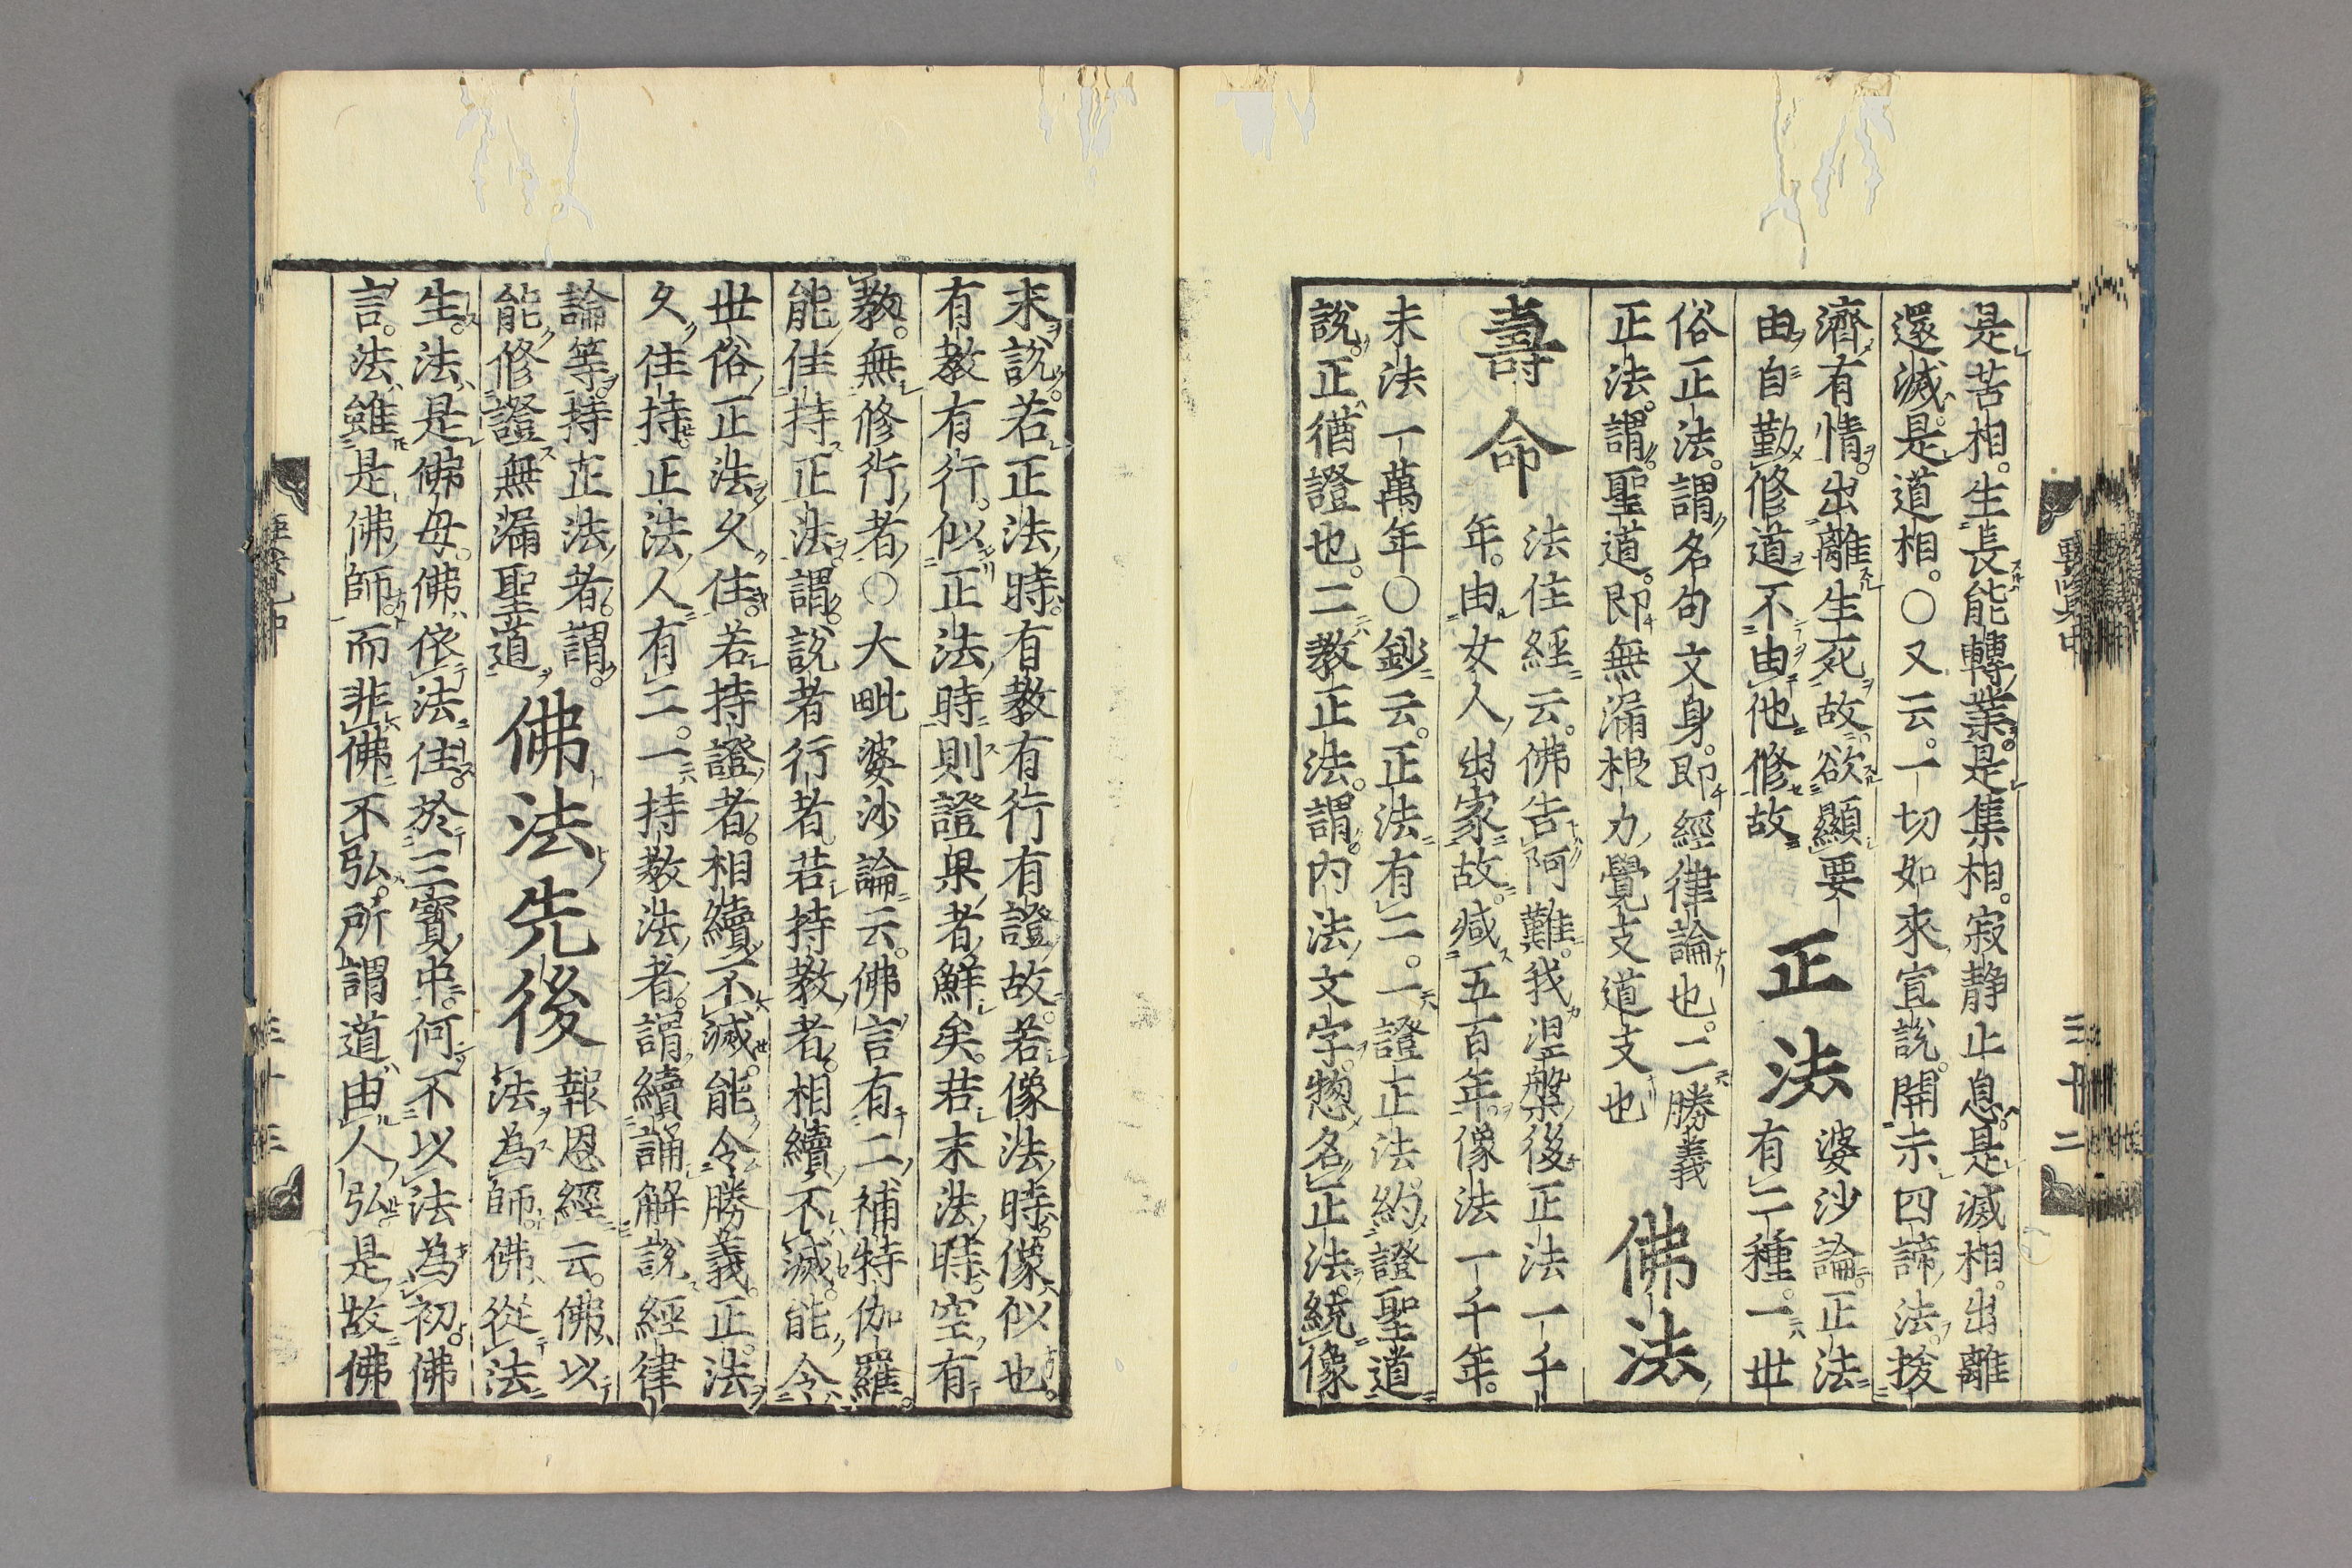 是苦相。生長能轉業。是集相。寂静止息。是滅相。出離
還滅。是道相。〇又云。一切如來宣說。開示四諦法。拔
濟有情。出離生死故。欲顯要
由自勤修道。不由他修故
正法
婆沙論。正法
有二種。一世
俗正法。謂名句文身。即經律論也。二勝義
正法。謂聖道。即無漏根力覺支道支也
佛法
壽命
法住經云。佛告阿難。我涅槃後正法一千
年。由女人出家故。減五百年。像法一千年。
末法一萬年〇鈔云。正法有二。一證正法。約證聖道
說。正猶證也。二教正法。謂內法文字。惣名正法。統像
末說。若正法時。有教有行有證故。若像法時。像似也。
有教有行。似正法時。則證果者鮮矣。若末法時。空有
教。無修行者〇大毗婆沙論云。佛言有二補特伽羅。
能住持正法。謂說者行者。若持教者。相續不滅。能令
世俗正法久住。若持證者。相續不滅。能令勝義。正法
久住持。正法人有二。一持教法者。謂續誦解說經律
論等。持正法者。謂
能修證無漏聖道
佛法先後
報恩經云。佛以
法為師。佛從法
生。法是佛母。佛依法住。於三寶中。何不以法為初。佛
言。法雖是佛師。而非佛不弘。所謂道由人弘。是故佛
要覽中
三十二